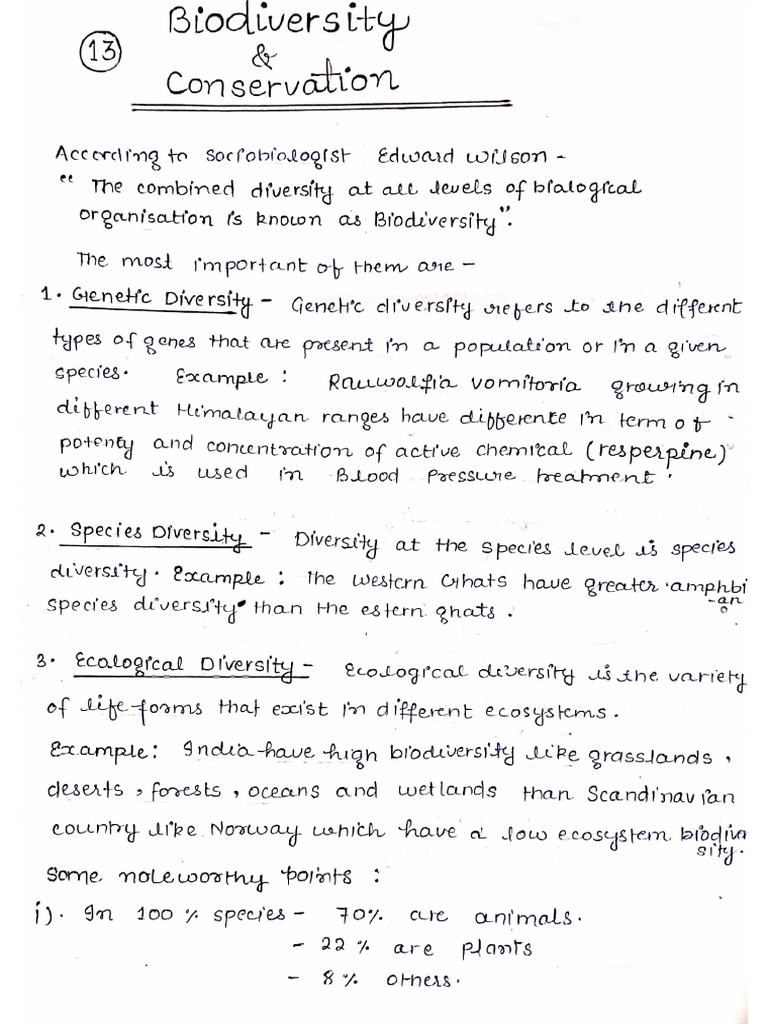 Biodiversity
13
&
Conservation
According to Sociobiologist Edward Wilson -
" The combined diversity at all levels of bialogical
organisation is known as Biodiversity".
The most important of them are -
1. Genetic Diversity - Genetic diversity refers to the different
types of genes that are present in a population or in a given
species. Example : Rauwolfia vomitoria growing in
different Himalayan ranges have differente in term of
potenty and concentration of active chemical (resperpine)
which is used in Blood Pressure treatment.
2. Species Diversity - Diversity at the species level is species
diversity. Example : The western Ghats have greater amphbi
-an
species diversity than the estern ghats.
3. Ecalogical Diversity - Ecological diversity is the variety
of life-forms that exist in different ecosystems.
Example: India have high biodiversity like grasslands,
deserts, forests, oceans and wetlands than Scandinavian
country like Norway which have a low ecosystem biodiver
sity.
Some noleworthy points :
i). In 100 % species - 70% are animals.
- 22 % are plants
- 8 % others.